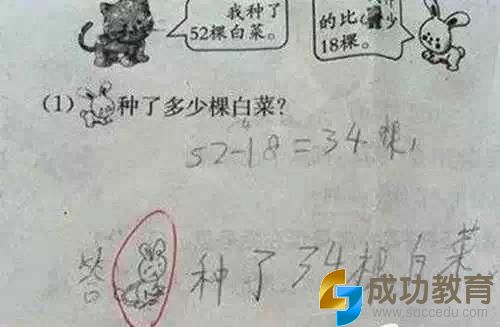 我种了
52棵白菜。
的比
少
18棵。
(1) 种了多少棵白菜?
52-18=34棵,
答 种了34棵白菜
成功教育
www.succedu.com